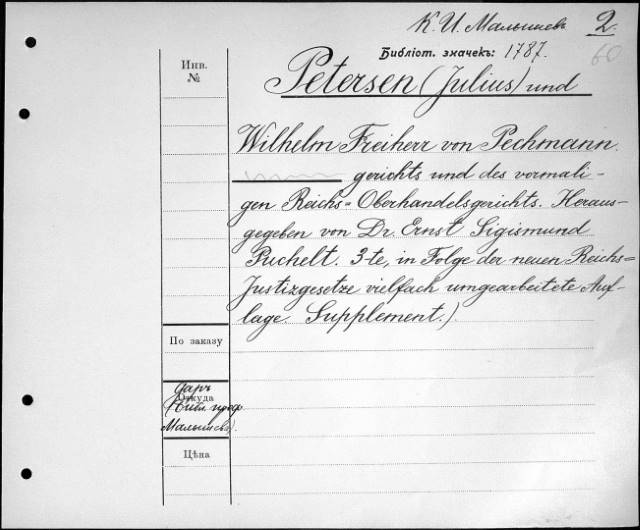 К. И. Малышевъ 2.
Библіот. значекъ: 1787. 60
Инв.
№
Petersen (Julius) und
Wilhelm Freiherr von Pechmann.
gerichts und des vormali-
gen Reichs=Oberhandelsgerichts. Heraus-
gegeben von Dr. Ernst Sigismund
Puchelt. 3-te, in Folge der neuen Reichs=
Justizgesetze vielfach umgearbeitete Auf-
lage. Supplement.)
По заказу
Откуда
Даръ
(библ. проф.
Малышева).
Цѣна